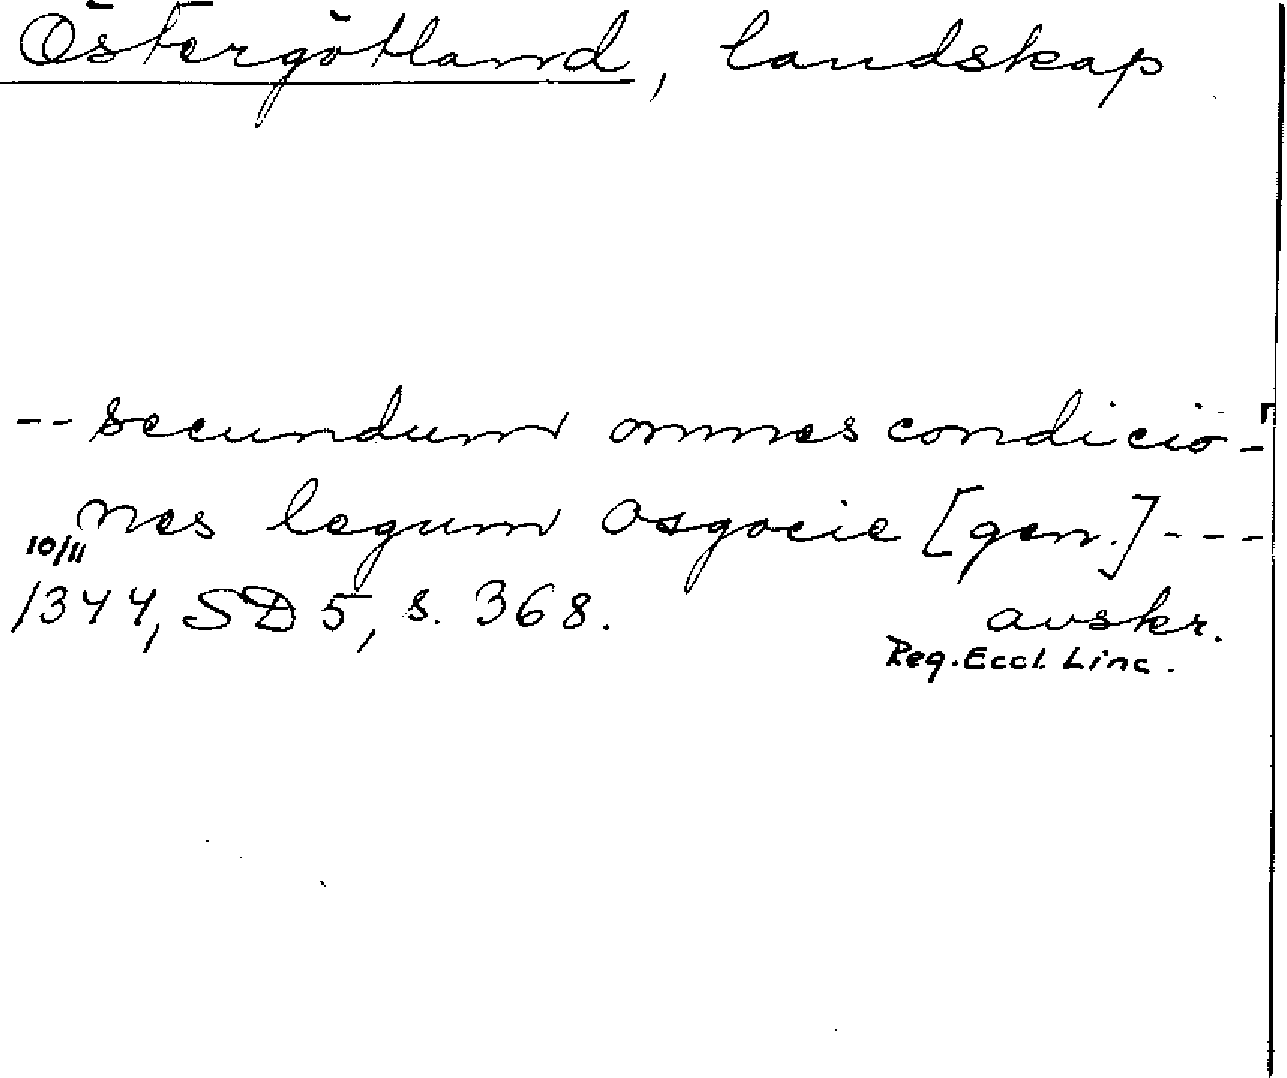 Östergötland, landskap
-- secundum omnes condicio-
nes legum Osgocie [gen.] ---
10/11
1344, SD 5, s. 368. avskr.
Reg. Eccl. Linc.